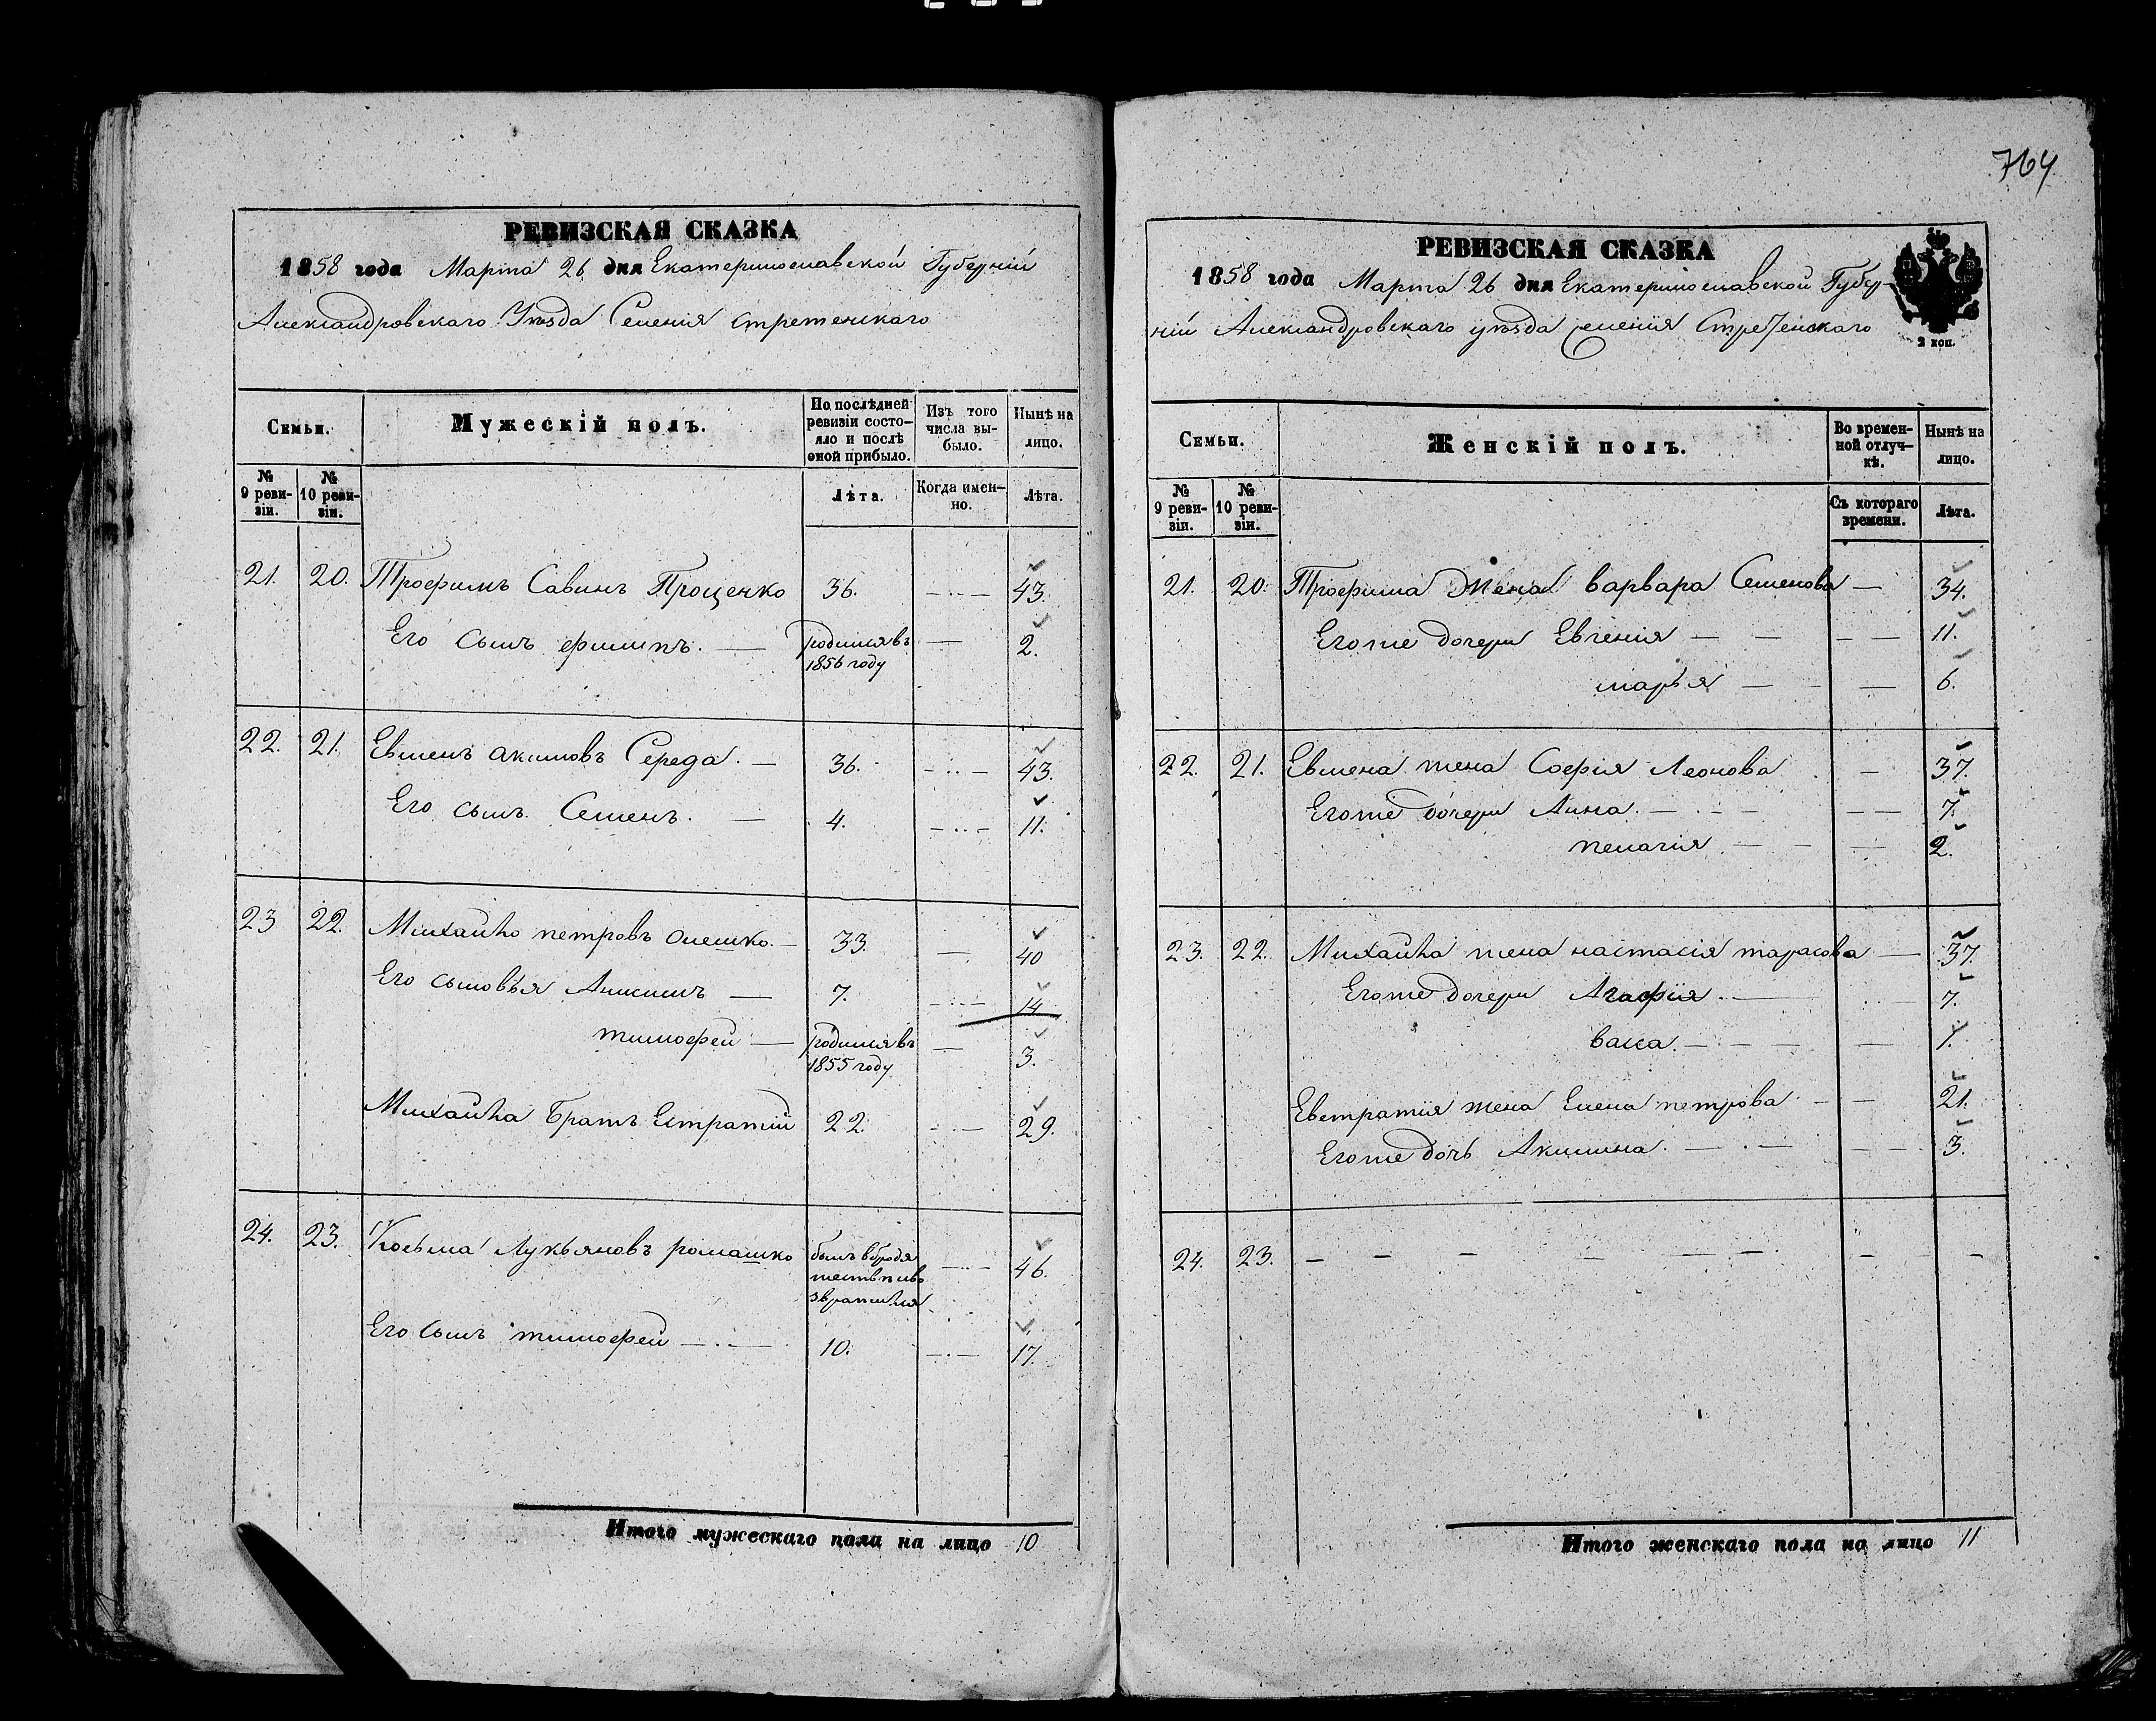 764
РЕВИЗСКАЯ СКАЗКА
1858 года Марта 26 дня Екатеринославской Губернiи
Александровскаго Уѣзда Селенiя Стретенскаго
Семьи.
Мужескiй полъ.
По послѣдней ревизiи состояло и послѣ оной прибыло.
Изъ того числа выбыло.
Нынѣ на лицо.
№ 9 ревизiи.
№ 10 ревизiи.
Лѣта.
Когда именно.
Лѣта.
21. 20. Трофимъ Савинъ Проценко 36. — 43.
Его сынъ филипъ. — родился въ 1856 году — 2.
22. 21. Евменъ акимовъ Середа. — 36. — 43.
Его сынъ Семенъ. — 4. — 11.
23 22. Михайло петровъ олешко. — 33. — 40
Его сыновья Аникимъ — 7. — 14
тимофей — родился въ 1855 году — 3.
Михайла Братъ Естратiй 22. — 29.
24. 23. Козьма Лукьяновъ ромашко былъ в бродя — 46.
Его сынъ тимофей — 10. — 17.
Итого мужескаго пола на лицо 10
РЕВИЗСКАЯ СКАЗКА
1858 года Марта 26 дня Екатеринославской Губер-
нiй Александровскаго уѣзда селенiя Стретенскаго
2 коп.
Семьи.
Женскiй полъ.
Во временной отлучкѣ.
Нынѣ на лицо.
№ 9 ревизiи.
№ 10 ревизiи.
Съ котораго времени.
Лѣта.
21. 20. Трофима Жена варвара Семенова — 34.
Егоже дочери Евгенiя — — — 11.
марья — — — 6.
22. 21. Евмена жена Софiя Леонова — 37.
Егоже дочери Анна. — — — 7.
пелагiя — — — 2.
23. 22. Михайла жена настасiя тарасова — 37.
Егоже дочери Агафiя. — 7.
васса. — — — 1.
Евстратiя жена Елена петрова — — 21.
Егоже дочь Акилина. — — — 3.
24. 23. — — — — — — — —
Итого женскаго пола на лицо 11